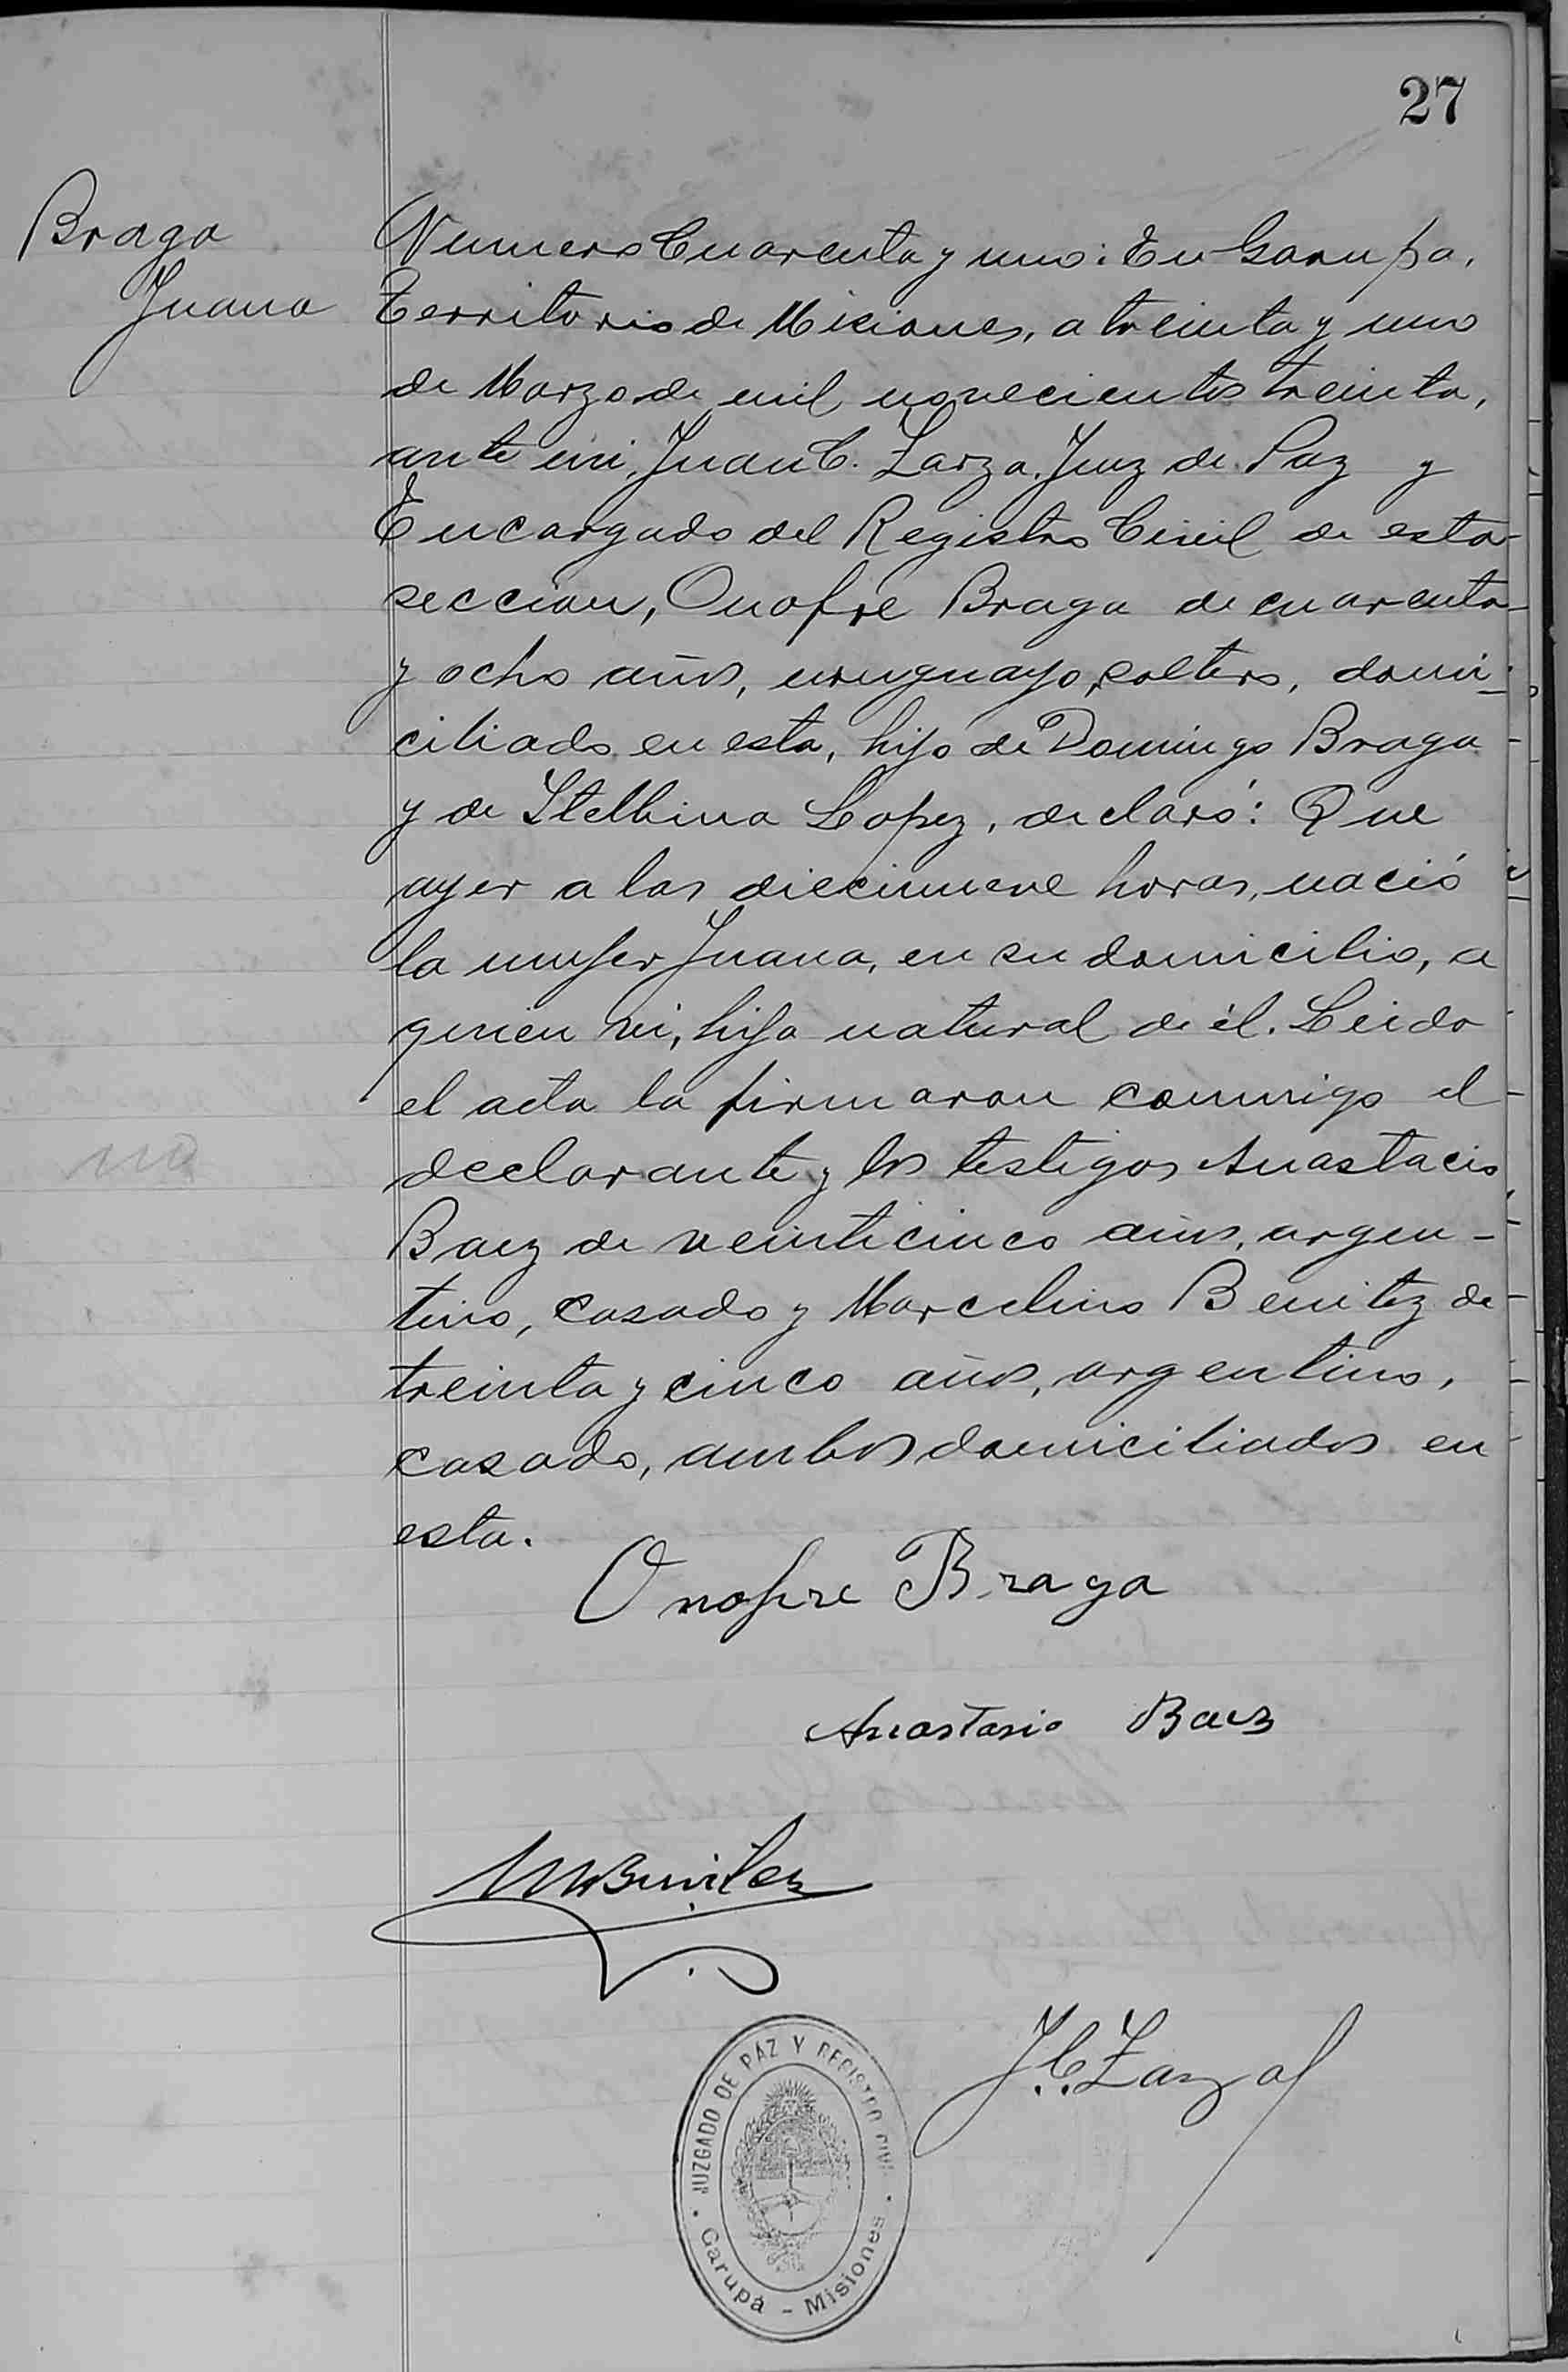 27
Braga
Juana
Numero Cuarenta y uno: En Garupa,
Territorio de Misiones, a treinta y uno
de Marzo de mil novecientos treinta,
ante mi, Juan C. Zarza, Juez de Paz y
Encargado del Registro Civil de esta
seccion, Onofre Braga de cuarenta
y ocho años, uruguayo, soltero, domi-
ciliado en esta, hijo de Domingo Braga
y de Lopez, declaró: Que
ayer a las diecinueve horas, nació
la mujer Juana, en su domicilio, a
quien vi, hija natural de él. Leida
el acta la firmaron conmigo el
declarante y los testigos Anastacio
Baez de veinticinco años, argen-
tino, casado y Marcelino Benitez de
treinta y cinco años, argentino,
casado, ambos domiciliados en
esta.
Onofre Braga
Anastasio Baez
M Benitez
J. C. Zarza
JUZGADO DE PAZ Y REGISTRO CIVIL
Garupá - Misiones